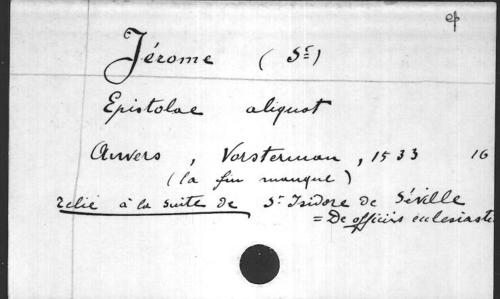 Jérome (St)
Epistolae aliquot
Anvers, Vorsterman, 1533 16
(la fin manque)
relié à la suite de St Isidore de Séville
= De officiis ecclesiasti